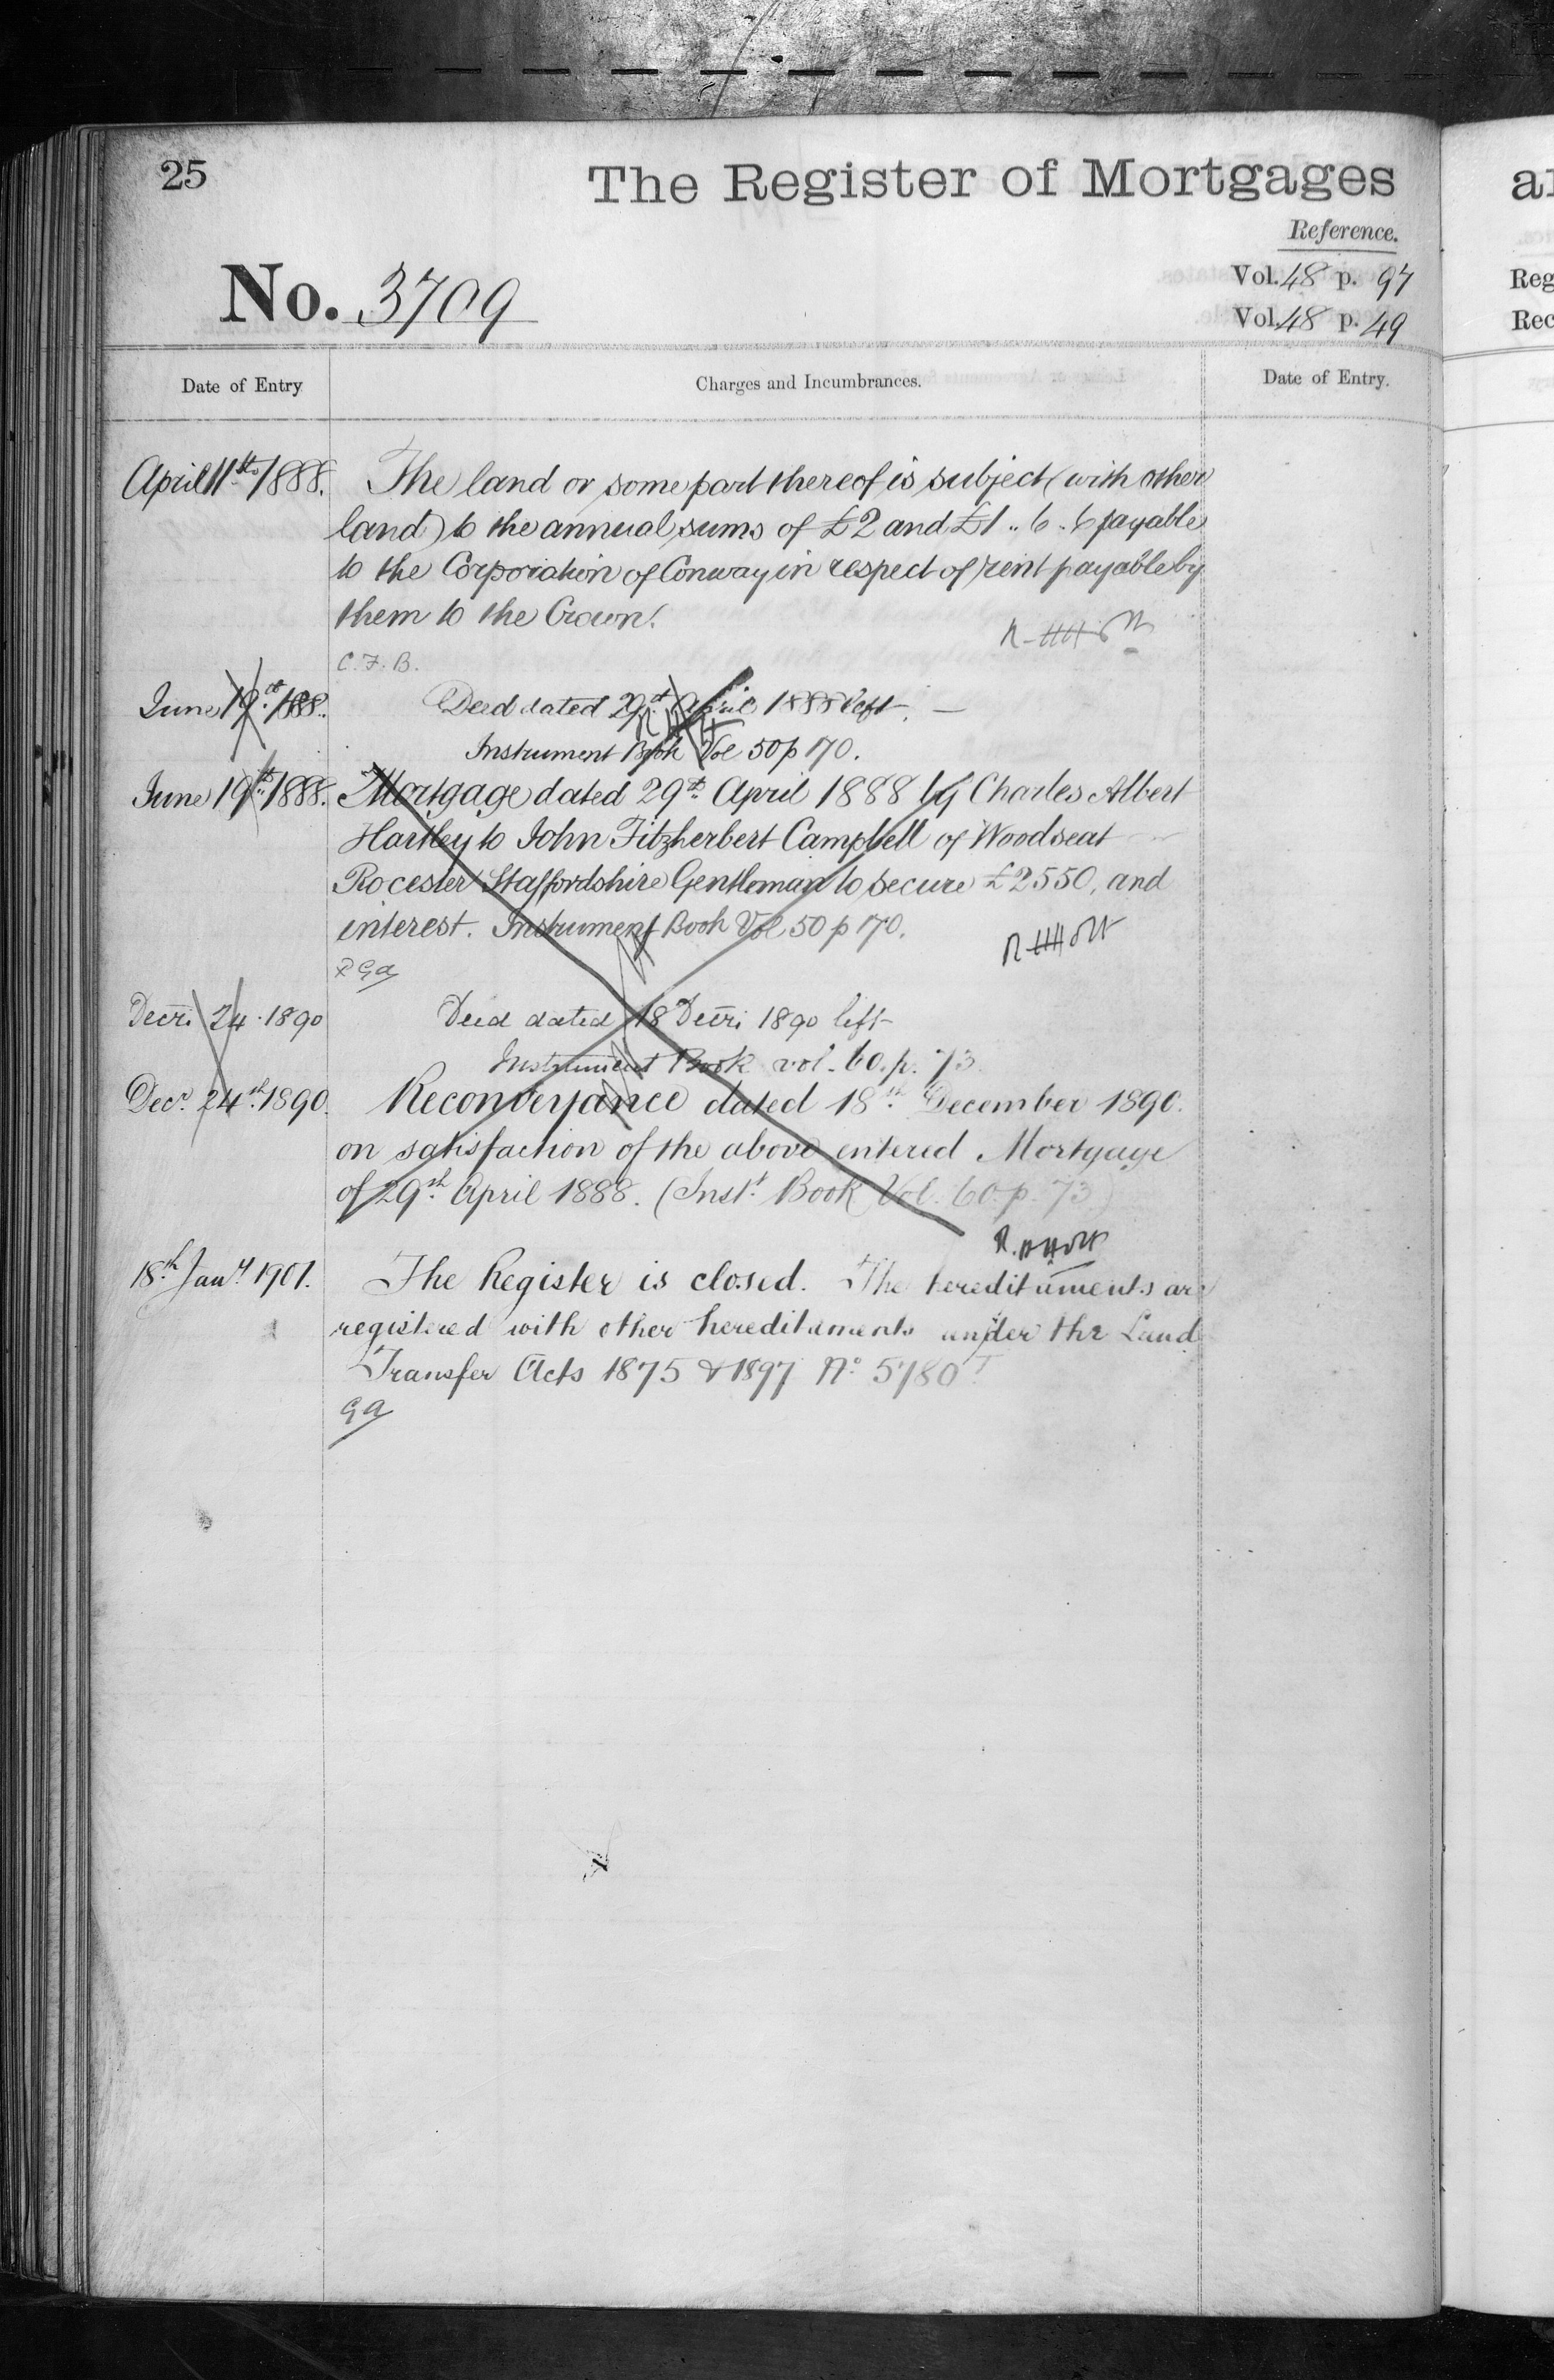 25
The Register of Mortgages
Reference.
No. 3709
Vol. 48 p. 97
Vol. 48 p. 49
Date of Entry
Charges and Incumbrances.
Date of Entry.
April 11th 1888. The land or some part thereof is subject (with other
land) to the annual sums of £2 and £1 .. 6 .. 6 payable
to the Corporation of Conway in respect of rent payable by
them to the Crown.
C. F. B.
June 19th 1888. Deed dated 29th April 1888 left.
Instrument Book Vol 50 p 170.
June 19th 1888. Mortgage dated 29th April 1888 by Charles Albert
Hartley to John Fitzherbert Campbell of Woodseat
Rocester Staffordshire Gentleman to secure £2550, and
interest. Instrument Book Vol 50 p 170.
Decr. 24. 1890 Deed dated 18 Decr. 1890 left
Instrument Book vol. 60. p. 73.
Decr. 24th 1890. Reconveyance dated 18th December 1890.
on satisfaction of the above entered Mortgage
of 29th April 1888. (Instt. Book Vol. 60. p. 73)
18th Jany 1901. The Register is closed. The hereditaments are
registered with other hereditaments under the Land
Transfer Acts 1875 & 1897 No. 5780
GA
Reg
Rec